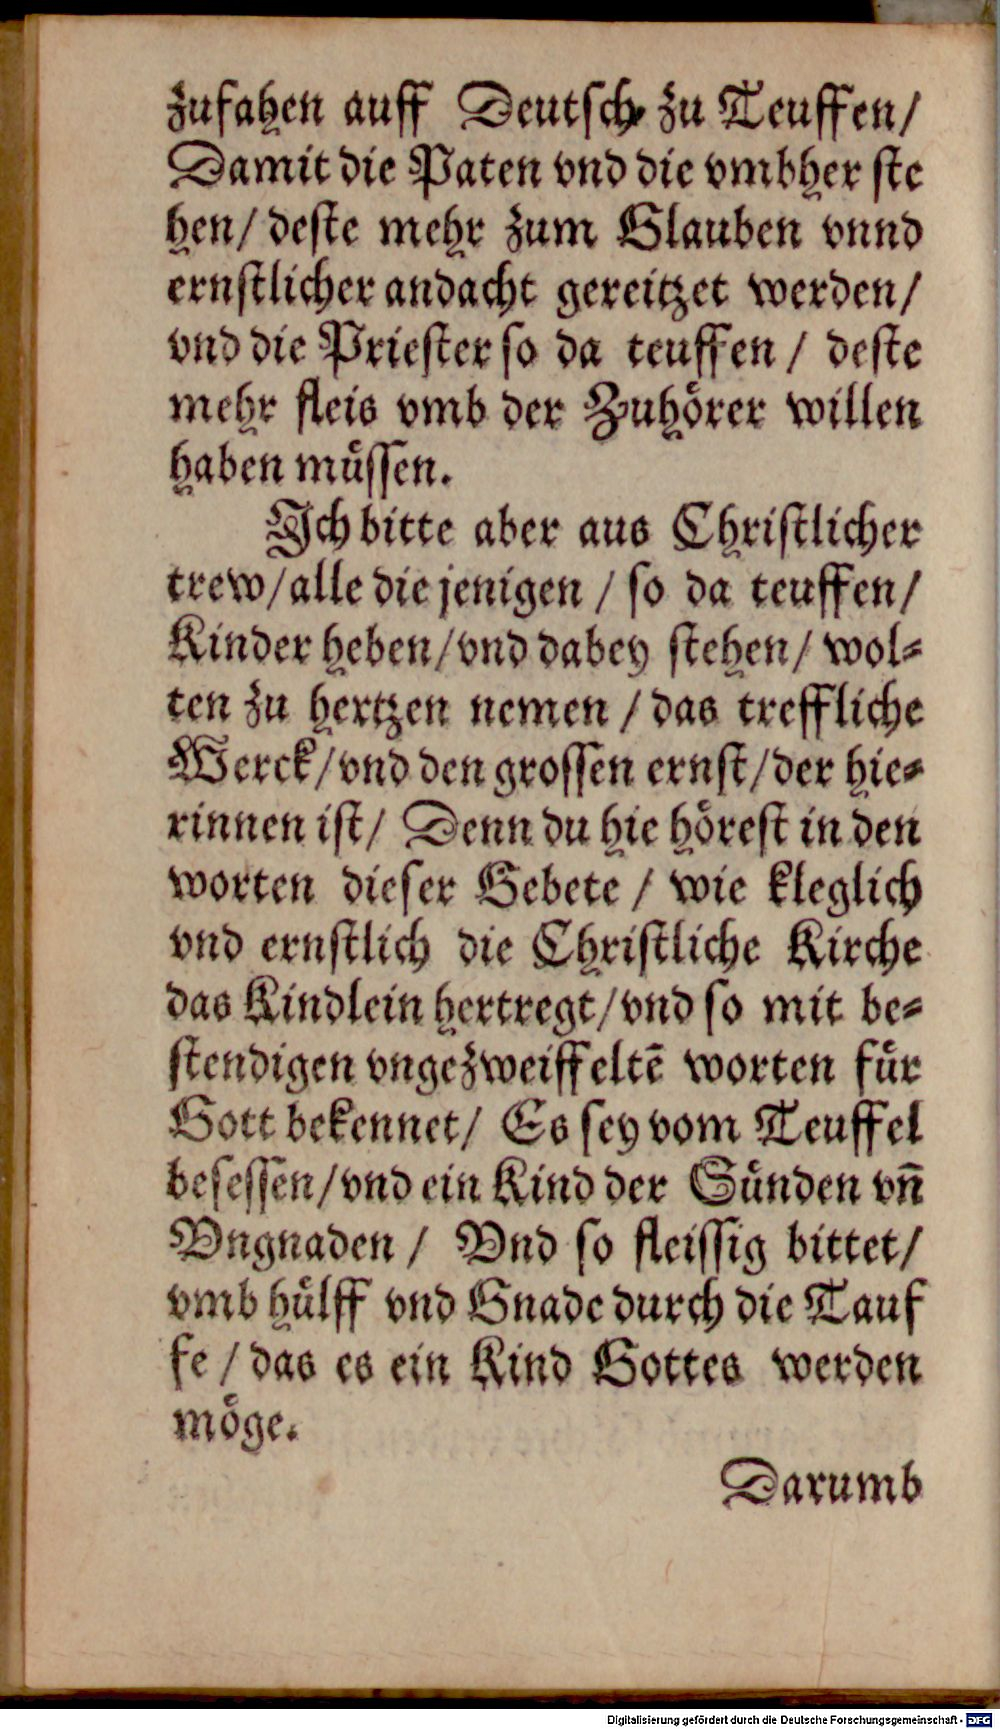 zufahen auff Deutsch zu Teuffen/
Damit die Paten vnd die vmbher ste
hen/ deste mehr zum Glauben vnnd
ernstlicher andacht gereitzet werden/
vnd die Priester so da teuffen / deste
mehr fleis vmb der Zuhoͤrer willen
haben muͤssen.
Ich bitte aber aus Christlicher
trew/ alle die jenigen / so da teuffen/
Kinder heben/ vnd dabey stehen/ wol⸗
ten zu hertzen nemen / das treffliche
Werck/ vnd den grossen ernst/ der hie⸗
rinnen ist/ Denn du hie hoͤrest in den
worten dieser Gebete / wie kleglich
vnd ernstlich die Christliche Kirche
das Kindlein hertregt/ vnd so mit be⸗
stendigen vngezweiffeltē worten fuͤr
Gott bekennet/ Es sey vom Teuffel
besessen/ vnd ein Kind der Suͤnden vn̄
Vngnaden / Vnd so fleissig bittet/
vmb huͤlff vnd Gnade durch die Tauf
fe / das es ein Kind Gottes werden
moͤge.
Darumb
Digitalisierung gefördert durch die Deutsche Forschungsgemeinschaft - DFG